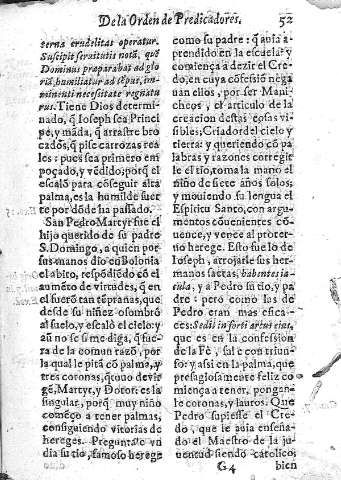 De la Orden de Predicadores. 52
terna crudelitas operatur.
Suscipit servitutis notã, quẽ
Dominus præparabat ad glo
riã, humiliatur ad tẽpus, im-
minenti necesitate regnatu
rus. Tiene Dios determi-
nado, q̃ Ioseph sea Princi
pe, y mãda, q̃ arrastre bro
cados, q̃ pise carrozas rea
les: pues sea primero em
poçado, y vẽdido; porq̃ el
escalõ para cõseguir alta
palma, es la humilde suer
te por dõde ha passado.
San Pedro Martyr fue el
hijo querido de su padre
S. Domingo, a quien por
sus manos dio en Bolonia
el abito, respõdiẽdo cõ el
aumẽto de virtudes, q̃ en
el fuerõ tan tẽpranas, que
desde su niñez osombrò
al suelo, y escalò el cielo: y
aũ no se si me diga, q̃ fue-
ra de la comun razõ, por
la qual le pĩtã cõ palma, y
tres coronas, q̃ ouo de vir
gẽ, Martyr, y Dotor: es la
singular, porq̃ muy niño
comẽço a tener palmas,
consiguiendo vitorias de
hereges. Preguntale vn
dia su tio, famoso herege
como su padre: q̃ auia a-
prendido en la escuela? y
comiença a dezir el Cre-
do, en cuya cõfesiõ nega
uan ellos, por ser Mani-
cheos, el articulo de la
creacion destas cosas vi-
sibles; Criador del cielo y
tierra: y queriendo cõ pa
labras y razones corregir
le el tio, toma la mano el
niño de siete años solos;
y mouiendo su lengua el
Espiritu Santo, con argu
mentos cõuenientes cõ-
uence, y vence al proter-
no herege. Esto fue lo de
Ioseph, arrojarle sus her-
manos saetas, habentes ia-
cula, y a Pedro su tio, y pa
dre: pero como las de
Pedro eran mas efica-
ces: Sedit in forti arcus eius,
que es en la confession
de la Fè, sale con triun-
fo: y assi en la palma, que
presagiosamente feliz co
miença a tener, pongan-
le coronas, y lauros. Que
Pedro supiesse el Cre-
do, que le auia enseña-
do el Maestro de la ju-
uentud siendo catolico;
G 4 bien